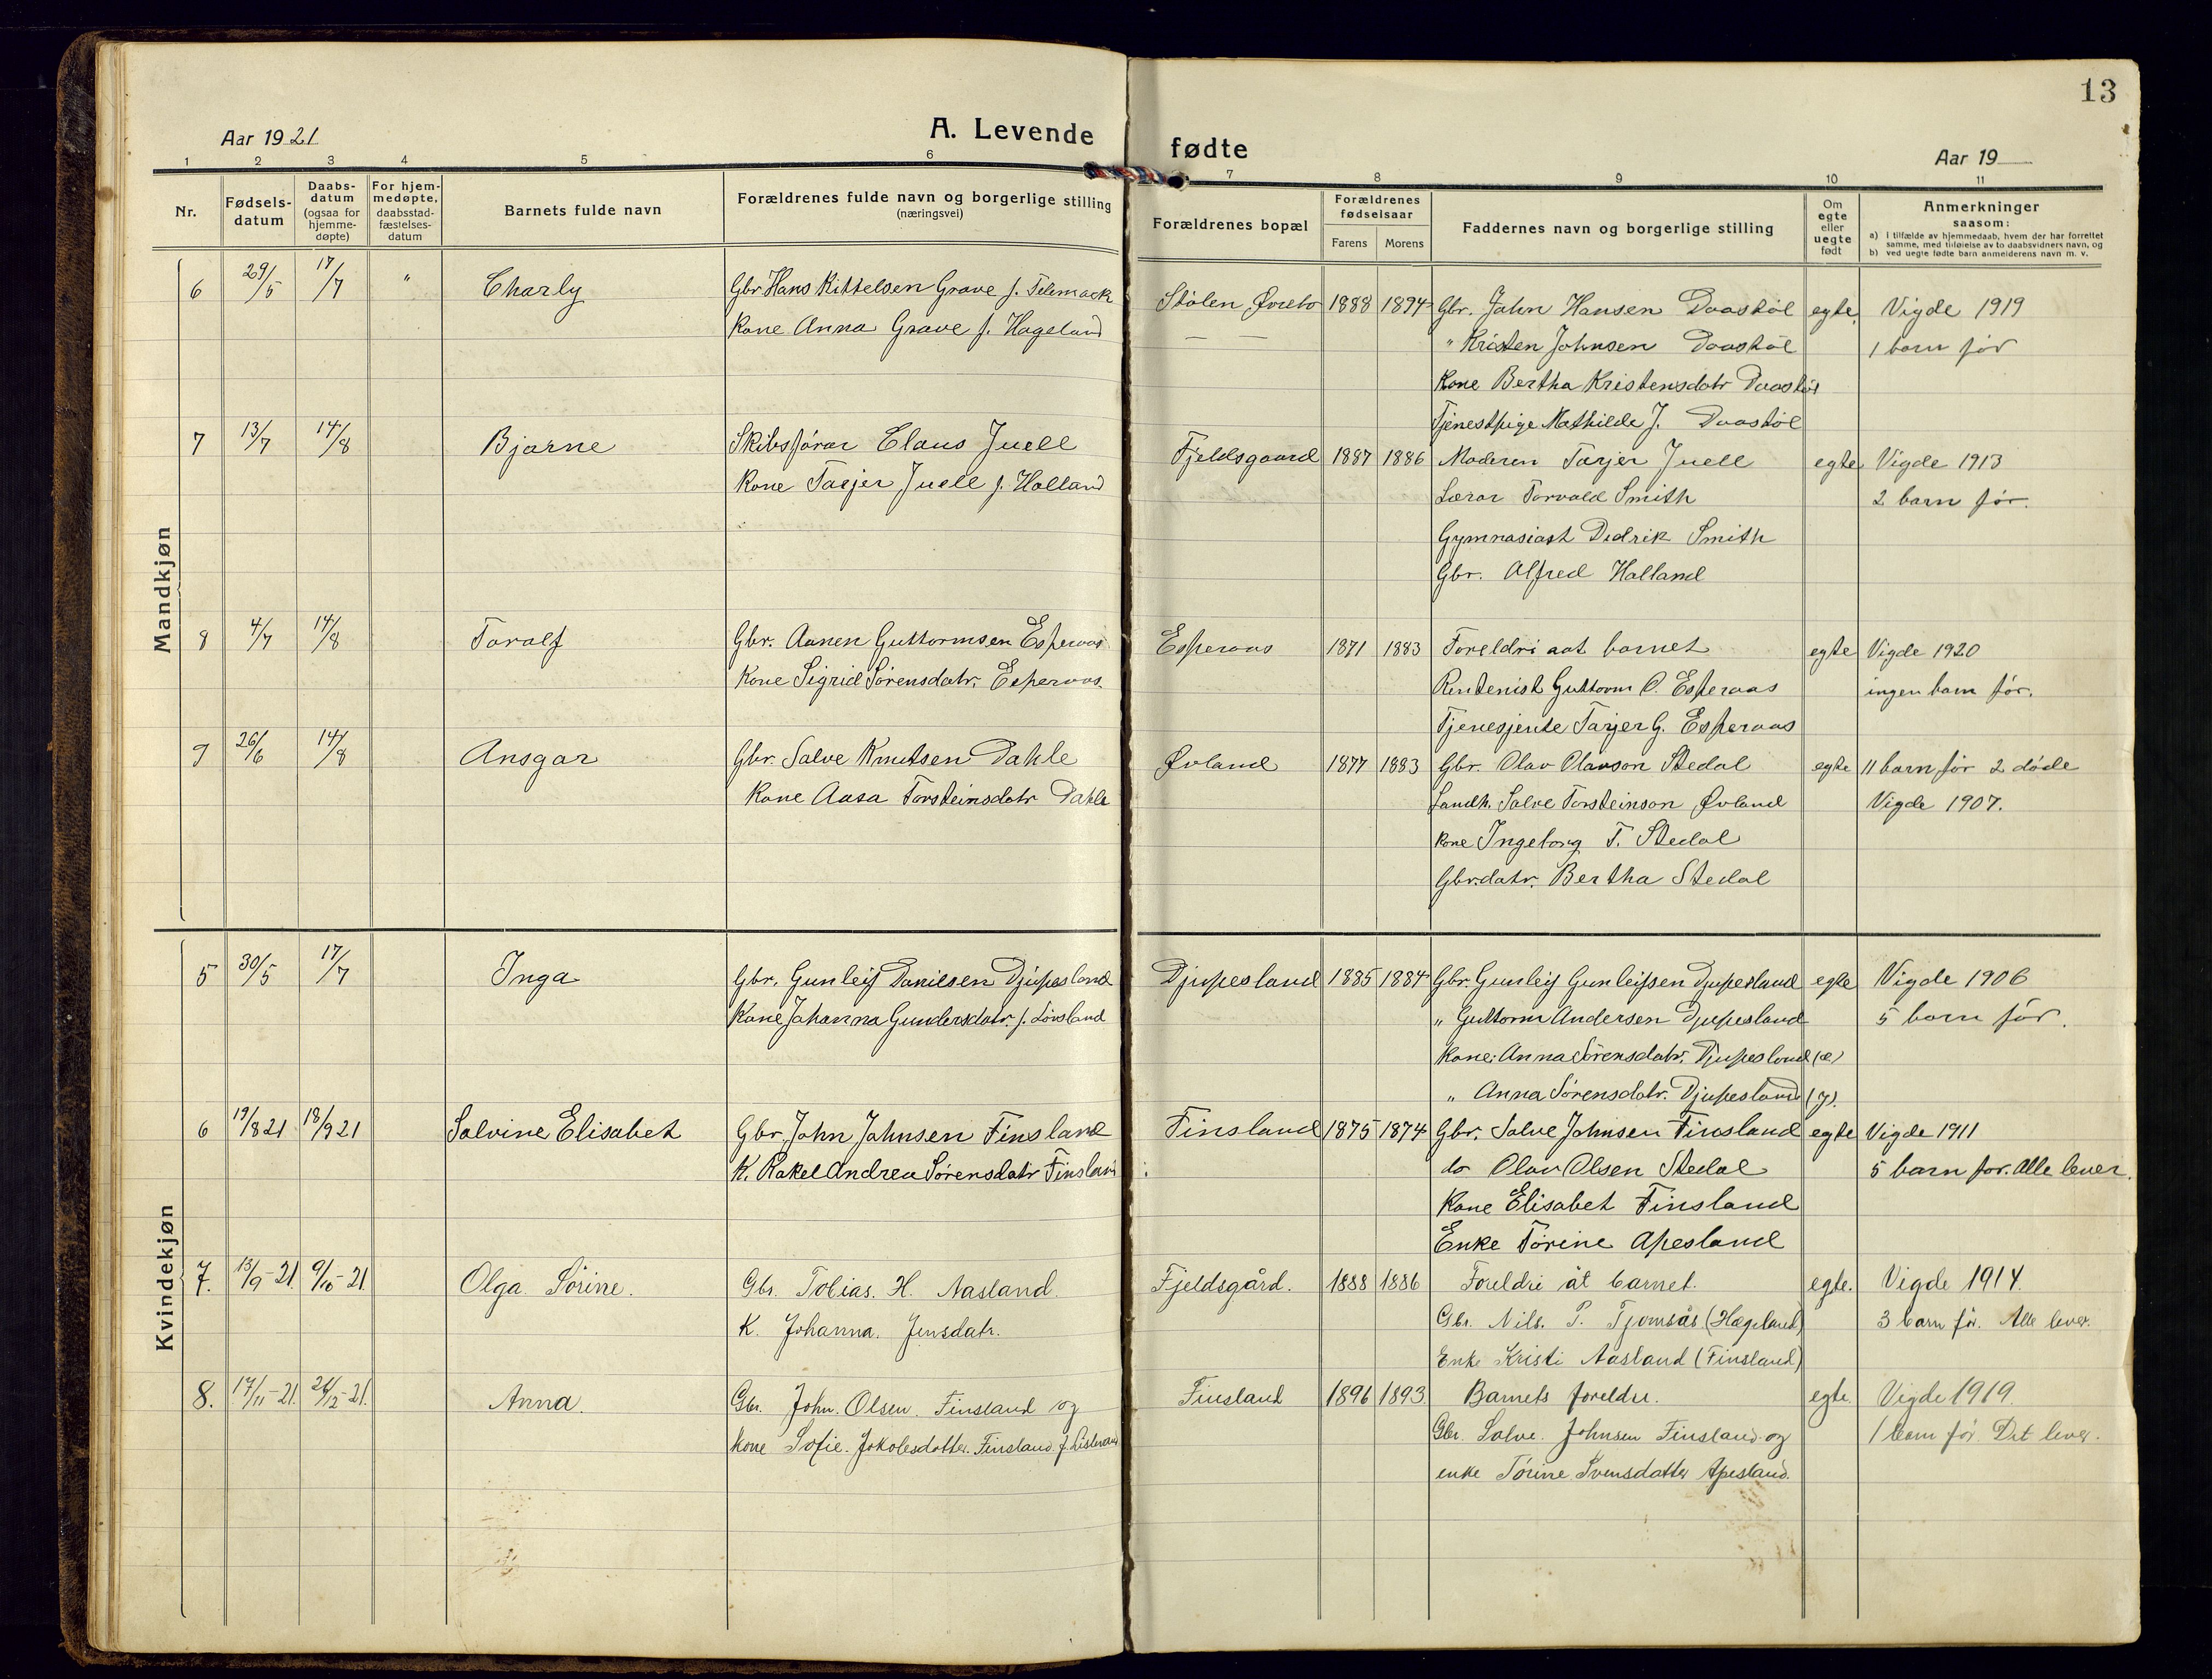 13
Aar 1921
A. Levende fødte
Aar 19
1 2 3 4 5 6 7 8 9 10 11
Nr.
Fødsels-
datum
Daabs-
datum
(ogsaa for
hjemme-
døpte)
For hjem-
medøpte,
daabsstad-
fæstelses-
datum
Barnets fulde navn
Forældrenes fulde navn og borgerlige stilling
(næringsvei)
Forældrenes bopæl
Forældrenes
fødselsaar
Farens Morens
Faddernes navn og borgerlige stilling
Om
egte
eller
uegte
født
Anmerkninger
saasom:
a) i tilfælde av hjemmedaab, hvem der har forrettet
samme, med tilføielse av to daabsvidners navn, og
b) ved uegte fødte barn anmelderens navn m. v.
Mandkjøn
6 29/5 17/7 " Charly Gbr Hans Kittelsen Grave f. Telemark Stølen Øvrebø 1888 1894 Gbr. John Hansen Daastøl egte Vigde 1919
Kone Anna Grave f. Hageland — — " Kristen Johnsen Daastøl 1 barn før
Kone Bertha Kristensdatr Daastøl
Tjenestpige Mathilde J. Daastøl
7 13/7 14/8 Bjarne Skibsfører Claus Juell Fjeldsgaard 1887 1886 Moderen Tarjer Juell egte Vigde 1913
Kone Tarjer Juell f. Holland Lærar Torvald Smith 2 barn før.
Gymnasiast Didrik Smith
Gbr. Alfred Holland
8 4/7 14/8 Toralf Gbr. Aanen Guttormsen Esperaas Esperaas 1871 1883 Foreldri aat barnet egte Vigde 1920
Kone Sigrid Sørensdatr. Esperaas. Rentenist Guttorm O. Esperaas ingen barn før.
Tjenesjente Tarjer G. Esperaas
9 26/6 14/8 Ansgar Gbr. Salve Knutsen Dahle Øvland 1877 1883 Gbr. Olav Olavson Stedal egte 11 barn før 2 døde
Kone Aasa Torsteinsdatr Dahle Landh. Salve Torsteinson Øvland Vigde 1907.
Kone Ingeborg T. Stedal
Gbr.datr. Bertha Stedal
Kvindekjøn
5 30/5 17/7 Inga Gbr. Gunleif Danielsen Djupesland Djupesland 1885 1884 Gbr. Gunleif Gunleifsen Djupesland egte Vigde 1906
Kone Johanna Gundersdatr. f. Løvsland " Guttorm Andersen Djupesland 5 barn før.
Kone: Anna Sørensdatr. Djupesland (e)
" Anna Sørensdatr. Djupesland (y).
6 19/8 21 18/9 21 Salvine Elisabet Gbr. John Johnsen Finsland Finsland 1875 1874 Gbr. Salve Johnsen Finsland egte Vigde 1911
K. Rakel Andrea Sørensdatr Finsland do Olav Olsen Stedal 5 barn før. Alle lever.
Kone Elisabet Finsland
Enke Tørine Apesland
7. 13/9-21 9/10-21 Olga Sørine. Gbr. Tobias. H. Aasland. Fjeldsgård. 1888 1886 Foreldri åt barnet. egte. Vigde 1914.
K. Johanna. Jensdatr. Gbr. Nils. P. Tjomsås (Hægeland) 3 barn før. Alle lever.
Enke Kristi Aasland (Finsland)
8. 17/11-21. 26/12-21. Anna. Gbr. John. Olsen. Finsland og Finsland 1896 1893. Barnets foreldre. egte. Vigde 1919.
Kone Sofie. Jakobsdotter. Finsland. f. Gbr. Salve. Johnsen Finsland og 1 barn før. Det lever.
enke Tørine Svensdatter Apesland.